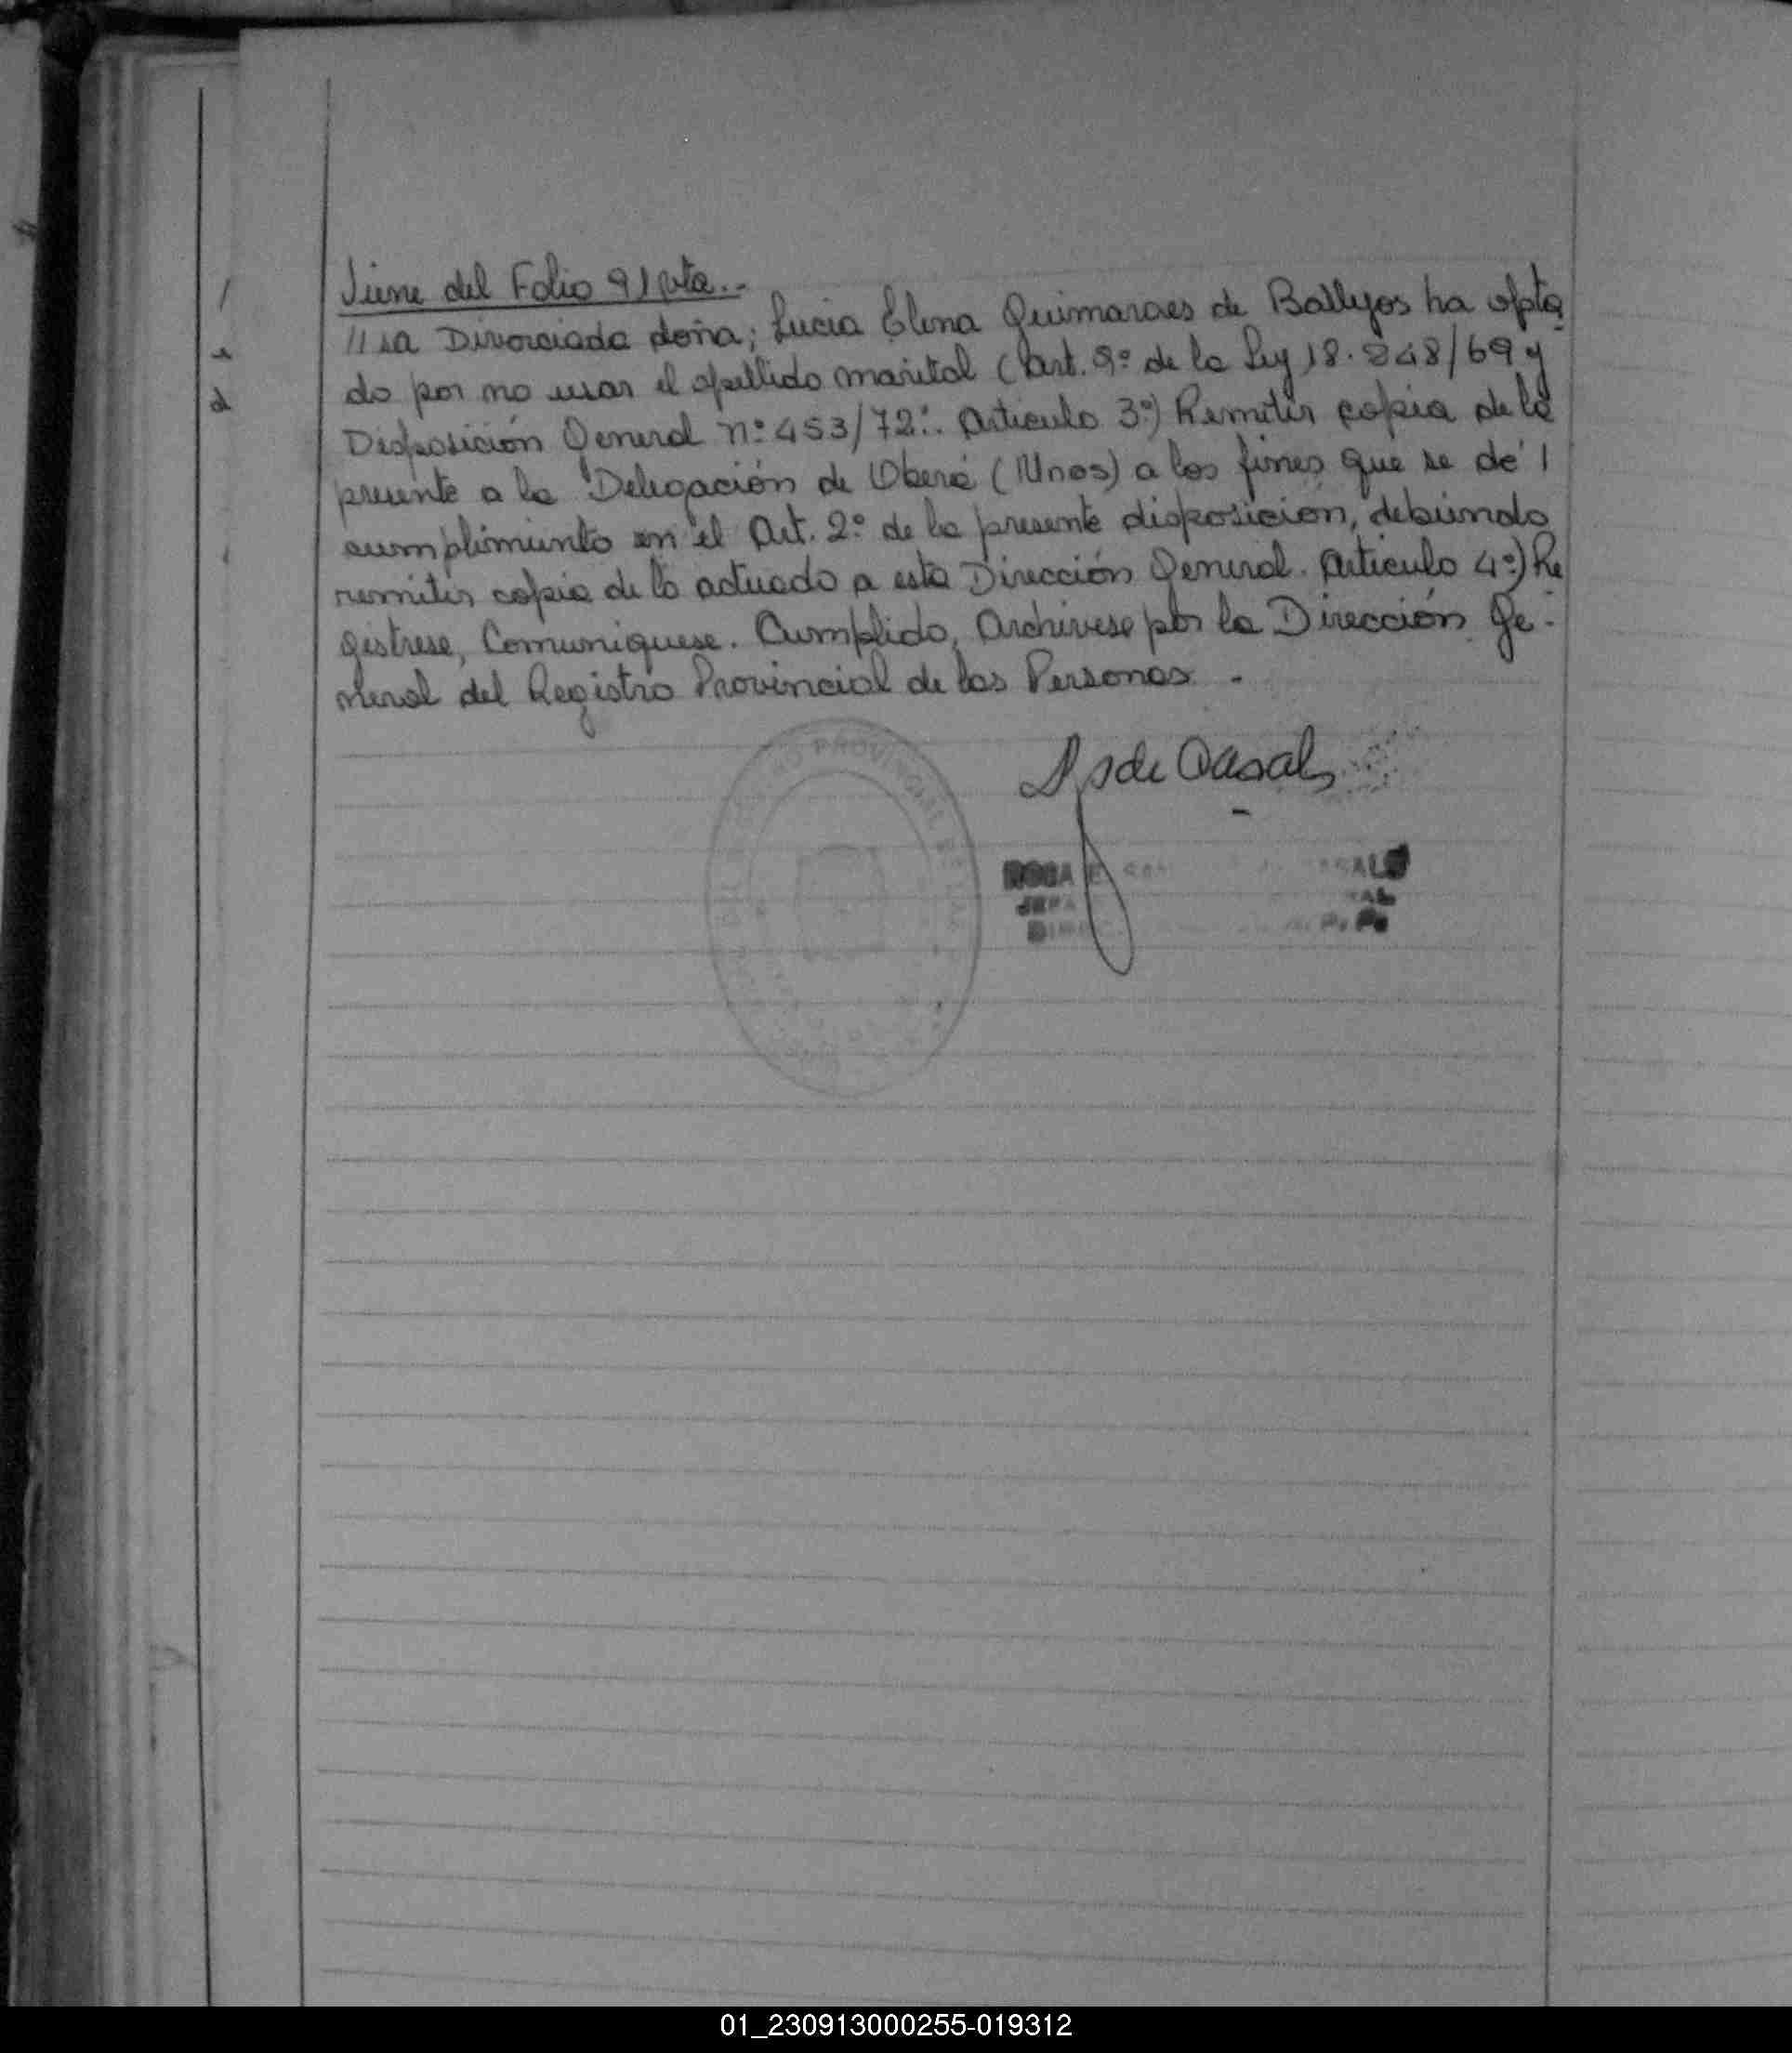 Viene del Folio 91 vta..-
// sa Divorciada doña; Lucia Elena Guimaraes de Ballejos ha opta
do por no usar el apellido marital (Art. 9º de la Ley 18.248/69 y
Disposición General nº 453/72º. Articulo 3º) Remitir copia de la
presente a la Delegación de Oberá (Mnes) a los fines que se de /
cumplimiento en el Art. 2º de la presente disposición, debiendo
remitir copia de lo actuado a esta Dirección General. Articulo 4º) Re
gistrese, Comuniquese. Cumplido, Archivese por la Dirección Ge-
neral del Registro Provincial de las Personas. -
de Casals
ROSA E.
01_230913000255-019312